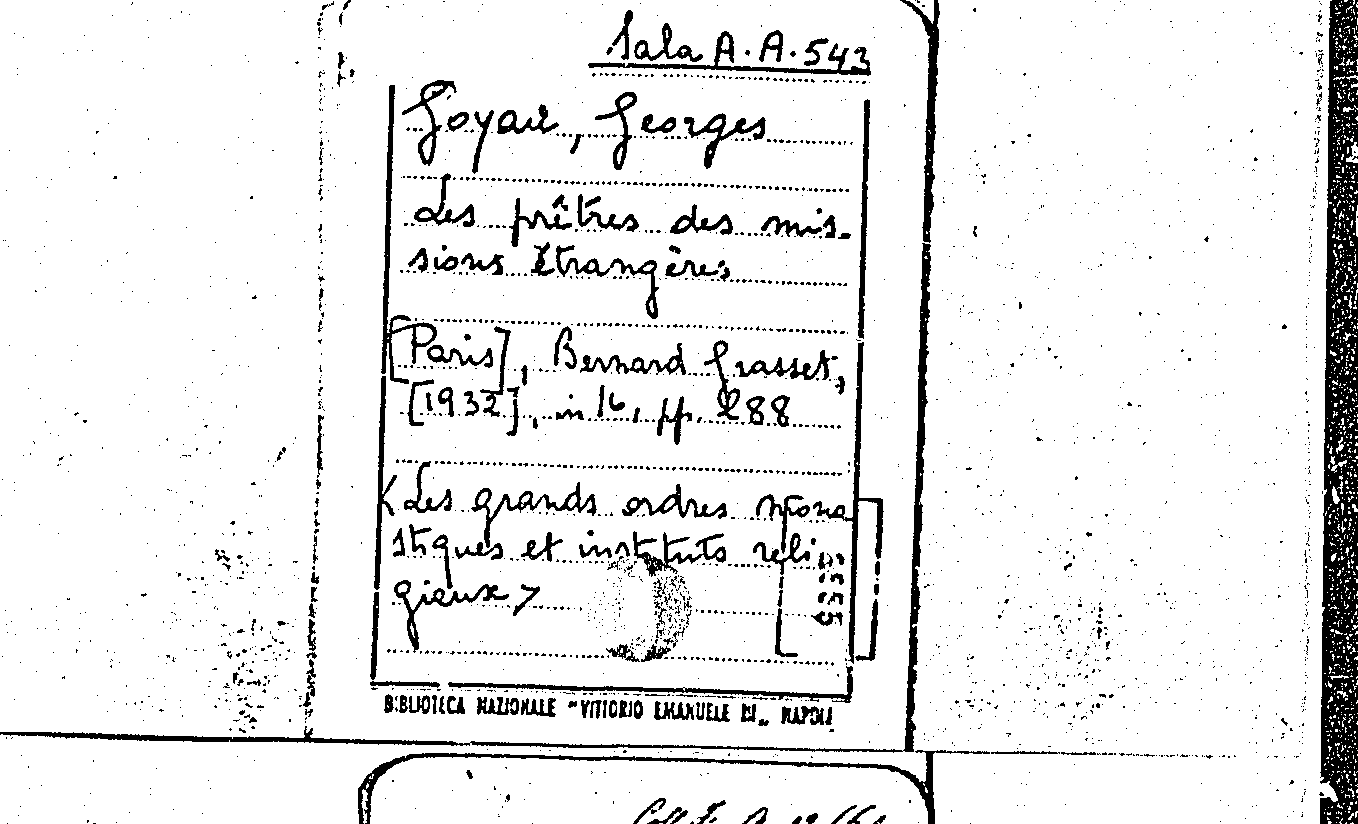 Sala A.A.543
Goyau, Georges
Les prêtres des mis-
sions étrangères
[Paris], Bernard Grasset,
[1932], in 16, pp. 288
<Les grands ordres mona
stiques et instituts reli
gieux>
BIBLIOTECA NAZIONALE "VITTORIO EMANUELE III" NAPOLI